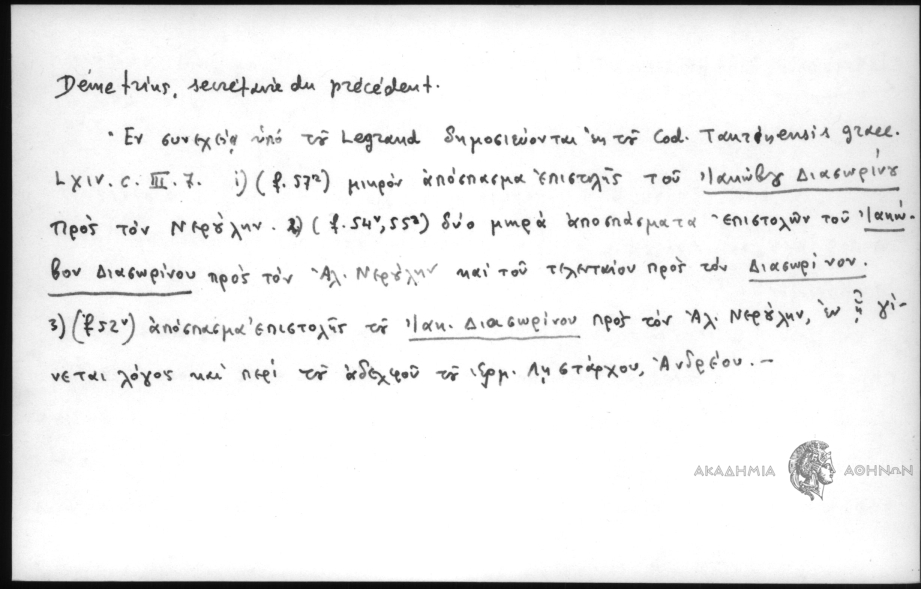 Démétrius, secrétaire du précédent.
Ἐν συνεχείᾳ ὑπό τοῦ Legrand δημοσιεύονται ἐκ τοῦ Cod. Taurinensis graec.
LXIV. c. III. 7. 1) (f. 57ʳ) μικρόν ἀπόσπασμα ἐπιστολῆς τοῦ Ἰακώβου Διασωρίνου
πρός τόν Νερούλην. 2) (f. 54ᵛ, 55ʳ) δύο μικρά ἀποσπάσματα ἐπιστολῶν τοῦ Ἰακώ-
βου Διασωρίνου πρός τόν Ἀλ. Νερούλην καί τοῦ τελευταίου πρός τόν Διασωρίνον.
3) (f. 52ᵛ) ἀπόσπασμα ἐπιστολῆς τοῦ Ἰακ. Διασωρίνου πρός τόν Ἀλ. Νερούλην, ἐν ᾗ γί-
νεται λόγος καί περί τοῦ ἀδελφοῦ τοῦ Ἑρμ. Λῃστάρχου, Ἀνδρέου. –
ΑΚΑΔΗΜΙΑ ΑΘΗΝΩΝ